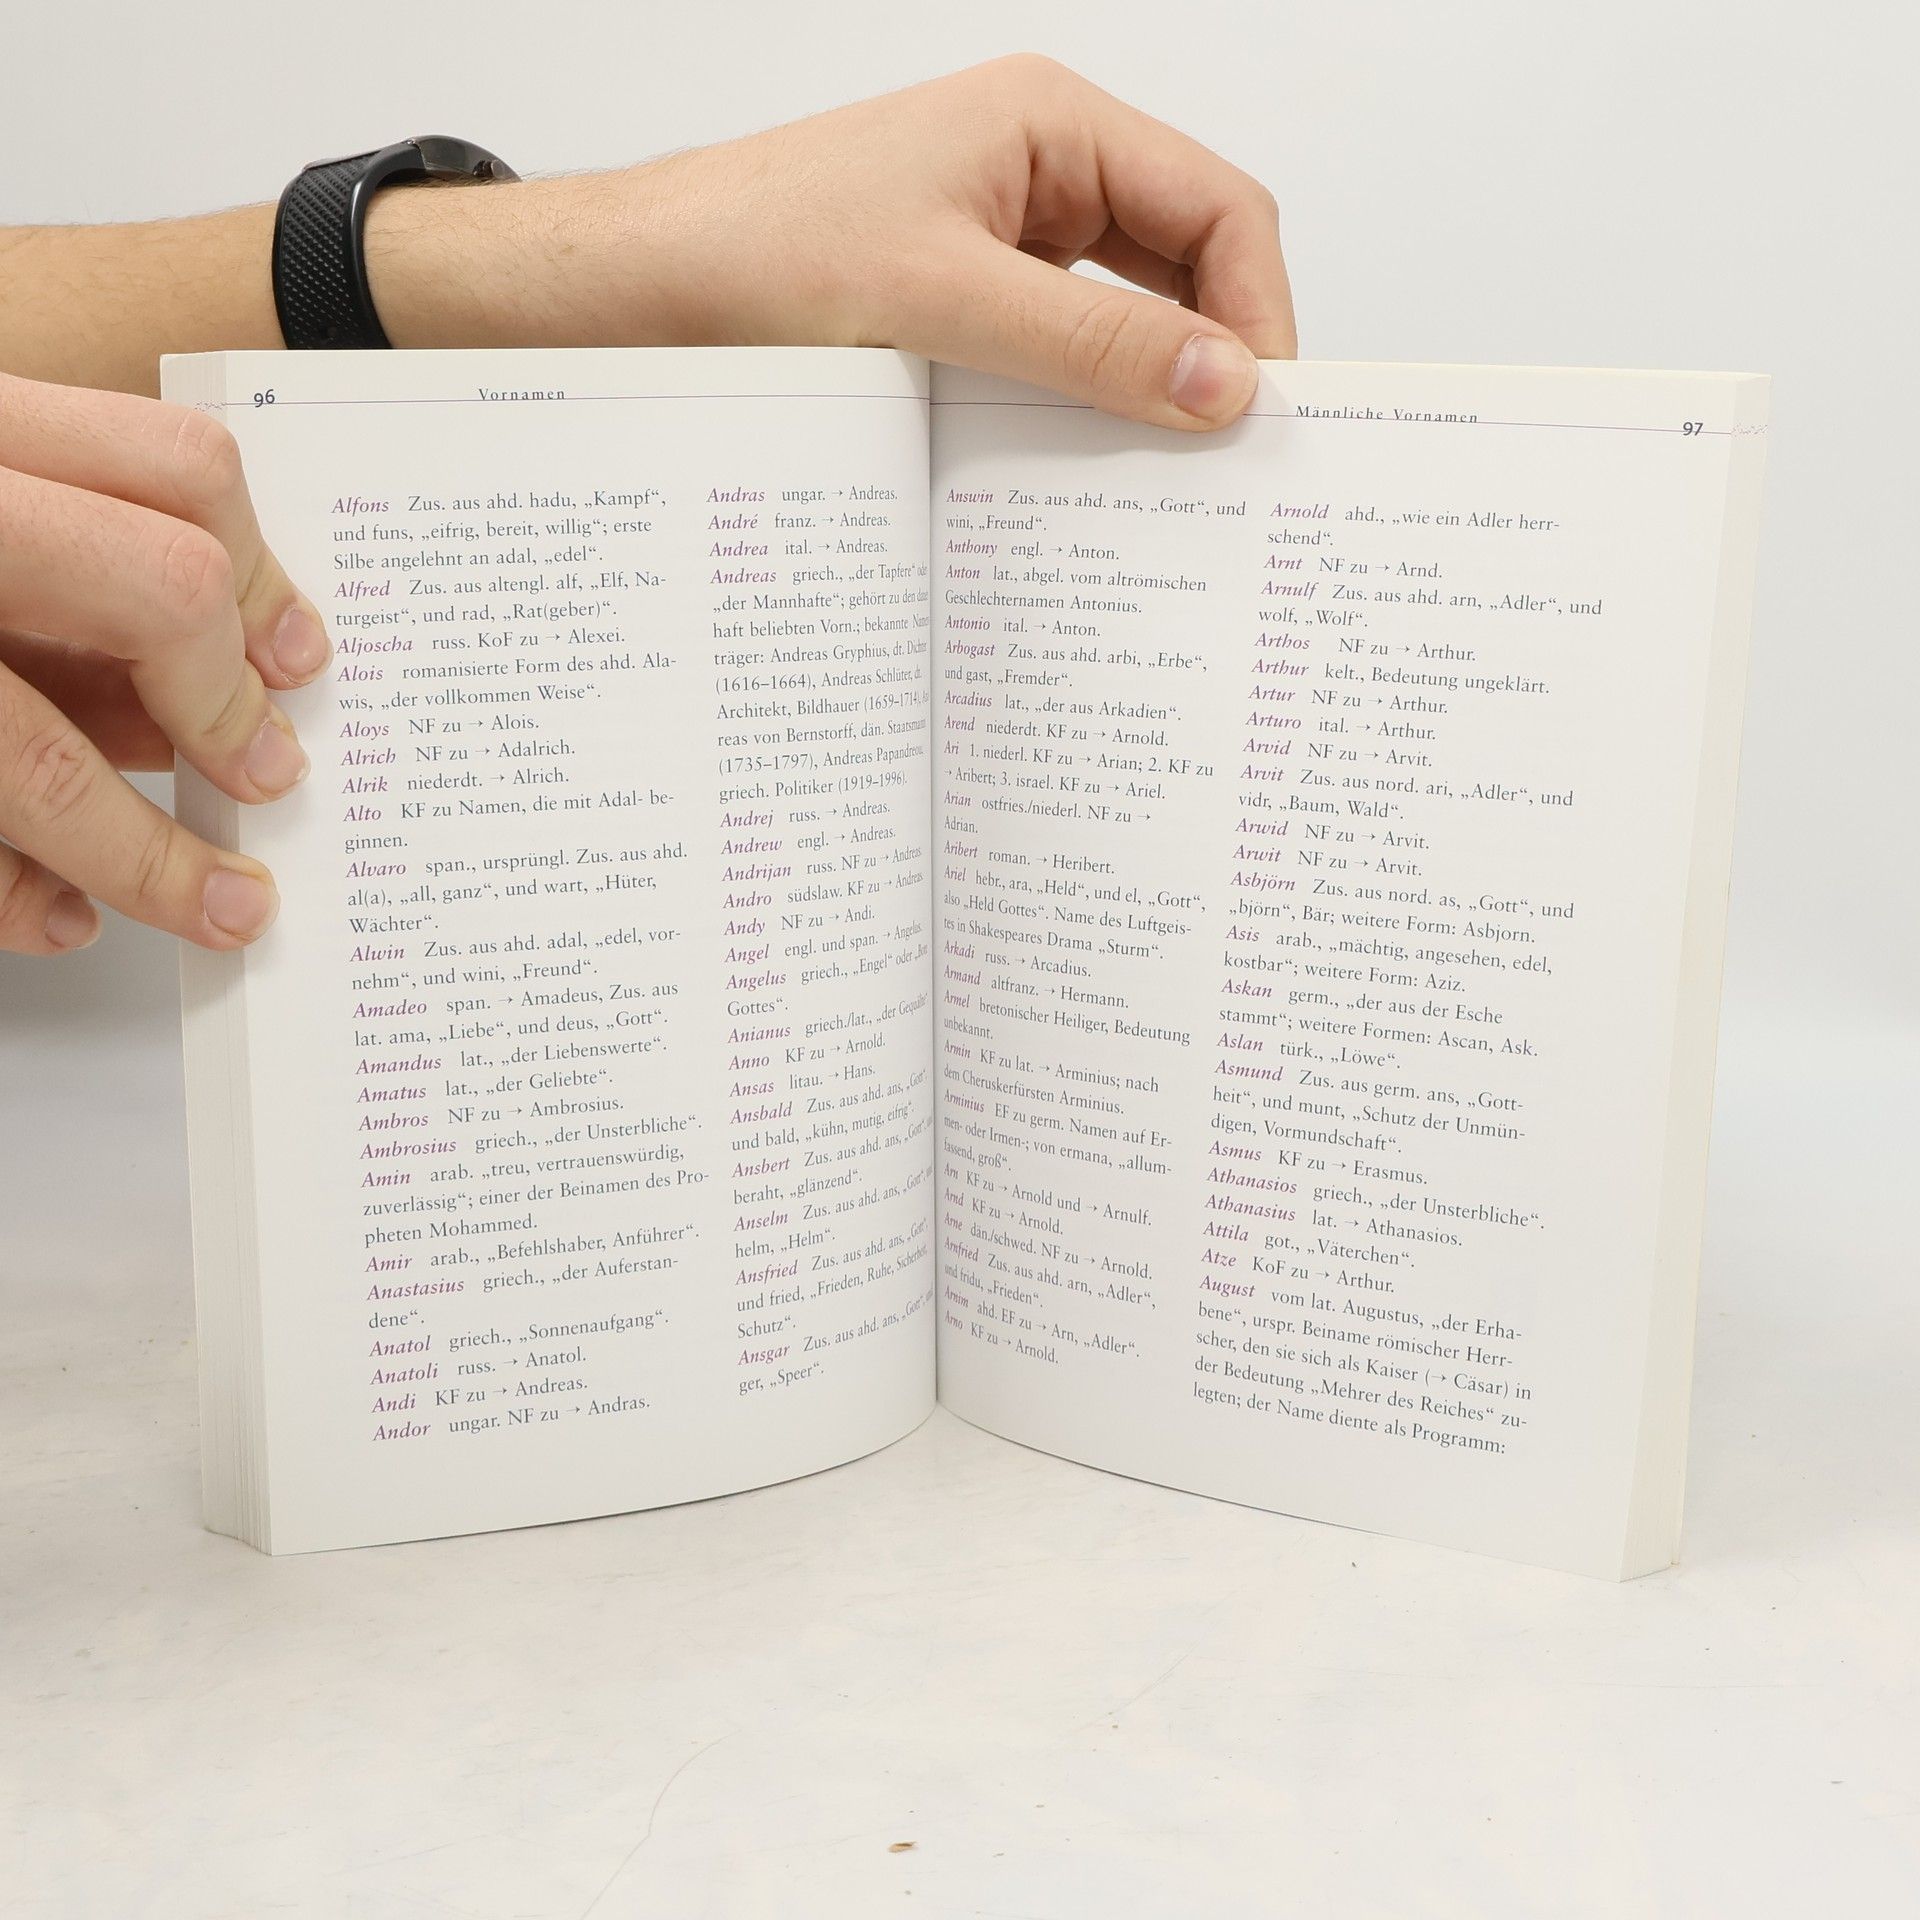 96
Vornamen
Alfons Zus. aus ahd. hadu, „Kampf“,
und funs, „eifrig, bereit, willig“; erste
Silbe angelehnt an adal, „edel“.
Alfred Zus. aus altengl. alf, „Elf, Na-
turgeist“, und rad, „Rat(geber)“.
Aljoscha russ. KoF zu → Alexei.
Alois romanisierte Form des ahd. Ala-
wis, „der vollkommen Weise“.
Aloys NF zu → Alois.
Alrich NF zu → Adalrich.
Alrik niederdt. → Alrich.
Alto KF zu Namen, die mit Adal- be-
ginnen.
Alvaro span., ursprüngl. Zus. aus ahd.
al(a), „all, ganz“, und wart, „Hüter,
Wächter“.
Alwin Zus. aus ahd. adal, „edel, vor-
nehm“, und wini, „Freund“.
Amadeo span. → Amadeus, Zus. aus
lat. ama, „Liebe“, und deus, „Gott“.
Amandus lat., „der Liebenswerte“.
Amatus lat., „der Geliebte“.
Ambros NF zu → Ambrosius.
Ambrosius griech., „der Unsterbliche“.
Amin arab. „treu, vertrauenswürdig,
zuverlässig“; einer der Beinamen des Pro-
pheten Mohammed.
Amir arab., „Befehlshaber, Anführer“.
Anastasius griech., „der Auferstan-
dene“.
Anatol griech., „Sonnenaufgang“.
Anatoli russ. → Anatol.
Andi KF zu → Andreas.
Andor ungar. NF zu → Andras.
Andras ungar. → Andreas.
André franz. → Andreas.
Andrea ital. → Andreas.
Andreas griech., „der Tapfere“ oder
„der Mannhafte“; gehört zu den dauer-
haft beliebten Vorn.; bekannte Namens-
träger: Andreas Gryphius, dt. Dichter
(1616–1664), Andreas Schlüter, dt.
Architekt, Bildhauer (1659–1714), And-
reas von Bernstorff, dän. Staatsmann
(1735–1797), Andreas Papandreou,
griech. Politiker (1919–1996).
Andrej russ. → Andreas.
Andrew engl. → Andreas.
Andrijan russ. NF zu → Andreas.
Andro südslaw. KF zu → Andreas.
Andy NF zu → Andi.
Angel engl. und span. → Angelus.
Angelus griech., „Engel“ oder „Bote
Gottes“.
Anianus griech./lat., „der Gequälte“.
Anno KF zu → Arnold.
Ansas litau. → Hans.
Ansbald Zus. aus ahd. ans, „Gott“,
und bald, „kühn, mutig, eifrig“.
Ansbert Zus. aus ahd. ans, „Gott“, und
beraht, „glänzend“.
Anselm Zus. aus ahd. ans, „Gott“, und
helm, „Helm“.
Ansfried Zus. aus ahd. ans, „Gott“,
und fried, „Frieden, Ruhe, Sicherheit,
Schutz“.
Ansgar Zus. aus ahd. ans, „Gott“, und
ger, „Speer“.
Männliche Vornamen
97
Answin Zus. aus ahd. ans, „Gott“, und
wini, „Freund“.
Anthony engl. → Anton.
Anton lat., abgel. vom altrömischen
Geschlechternamen Antonius.
Antonio ital. → Anton.
Arbogast Zus. aus ahd. arbi, „Erbe“,
und gast, „Fremder“.
Arcadius lat., „der aus Arkadien“.
Arend niederdt. KF zu → Arnold.
Ari 1. niederl. KF zu → Arian; 2. KF zu
→ Aribert; 3. israel. KF zu → Ariel.
Arian ostfries./niederl. NF zu →
Adrian.
Aribert roman. → Heribert.
Ariel hebr., ara, „Held“, und el, „Gott“,
also „Held Gottes“. Name des Luftgeis-
tes in Shakespeares Drama „Sturm“.
Arkadi russ. → Arcadius.
Armand altfranz. → Hermann.
Armel bretonischer Heiliger, Bedeutung
unbekannt.
Armin KF zu lat. → Arminius; nach
dem Cheruskerfürsten Arminius.
Arminius EF zu germ. Namen auf Er-
men- oder Irmen-; von ermana, „allum-
fassend, groß“.
Arn KF zu → Arnold und → Arnulf.
Arnd KF zu → Arnold.
Arne dän./schwed. NF zu → Arnold.
Arnfried Zus. aus ahd. arn, „Adler“,
und fridu, „Frieden“.
Arnim ahd. EF zu → Arn, „Adler“.
Arno KF zu → Arnold.
Arnold ahd., „wie ein Adler herr-
schend“.
Arnt NF zu → Arnd.
Arnulf Zus. aus ahd. arn, „Adler“, und
wolf, „Wolf“.
Arthos NF zu → Arthur.
Arthur kelt., Bedeutung ungeklärt.
Artur NF zu → Arthur.
Arturo ital. → Arthur.
Arvid NF zu → Arvit.
Arvit Zus. aus nord. ari, „Adler“, und
vidr, „Baum, Wald“.
Arwid NF zu → Arvit.
Arwit NF zu → Arvit.
Asbjörn Zus. aus nord. as, „Gott“, und
„björn“, Bär; weitere Form: Asbjorn.
Asis arab., „mächtig, angesehen, edel,
kostbar“; weitere Form: Aziz.
Askan germ., „der aus der Esche
stammt“; weitere Formen: Ascan, Ask.
Aslan türk., „Löwe“.
Asmund Zus. aus germ. ans, „Gott-
heit“, und munt, „Schutz der Unmün-
digen, Vormundschaft“.
Asmus KF zu → Erasmus.
Athanasios griech., „der Unsterbliche“.
Athanasius lat. → Athanasios.
Attila got., „Väterchen“.
Atze KoF zu → Arthur.
August vom lat. Augustus, „der Erha-
bene“, urspr. Beiname römischer Herr-
scher, den sie sich als Kaiser (→ Cäsar) in
der Bedeutung „Mehrer des Reiches“ zu-
legten; der Name diente als Programm: